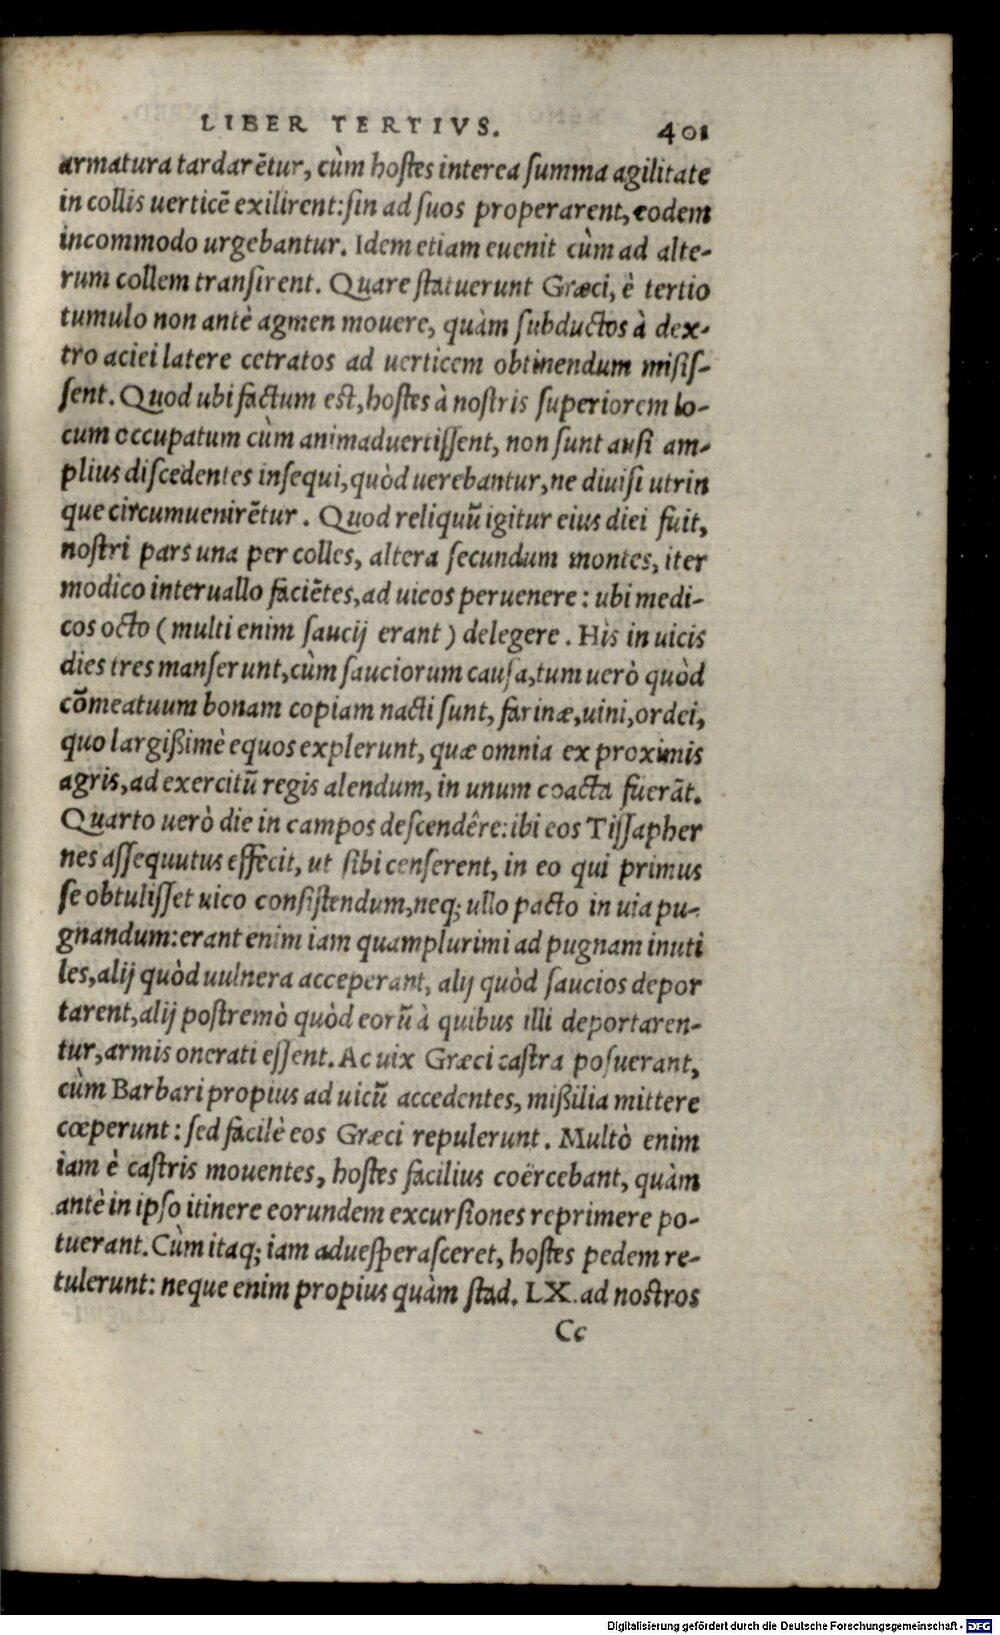 LIBER TERTIVS. 401
armatura tardarētur, cùm hostes interea summa agilitate
in collis uerticē exilirent: sin ad suos properarent, eodem
incommodo urgebantur. Idem etiam euenit cùm ad alte-
rum collem transirent. Quare statuerunt Græci, è tertio
tumulo non antè agmen mouere, quàm subductos à dex-
tro aciei latere cetratos ad uerticem obtinendum misis-
sent. Quod ubi factum est, hostes à nostris superiorem lo-
cum occupatum cùm animaduertissent, non sunt ausi am-
plius discedentes insequi, quòd uerebantur, ne diuisi utrin
que circumuenirētur. Quod reliquū igitur eius diei fuit,
nostri pars una per colles, altera secundum montes, iter
modico interuallo faciētes, ad uicos peruenere: ubi medi-
cos octo (multi enim saucij erant) delegere. His in uicis
dies tres manserunt, cùm sauciorum causa, tum uerò quòd
cōmeatuum bonam copiam nacti sunt, farinæ, uini, ordei,
quo largißimè equos explerunt, quæ omnia ex proximis
agris, ad exercitū regis alendum, in unum coacta fuerāt.
Quarto uerò die in campos descendêre: ibi eos Tissapher
nes assequutus effecit, ut sibi censerent, in eo qui primus
se obtulisset uico consistendum, neq; ullo pacto in uia pu-
gnandum: erant enim iam quamplurimi ad pugnam inuti
les, alij quòd uulnera acceperant, alij quòd saucios depor
tarent, alij postremò quòd eorū à quibus illi deportaren-
tur, armis onerati essent. Ac uix Græci castra posuerant,
cùm Barbari propius ad uicū accedentes, mißilia mittere
cœperunt: sed facilè eos Græci repulerunt. Multò enim
iam è castris mouentes, hostes facilius coërcebant, quàm
antè in ipso itinere eorundem excursiones reprimere po-
tuerant. Cùm itaq; iam aduesperasceret, hostes pedem re-
tulerunt: neque enim propius quàm stad. LX. ad nostros
Cc
Digitalisierung gefördert durch die Deutsche Forschungsgemeinschaft - DFG